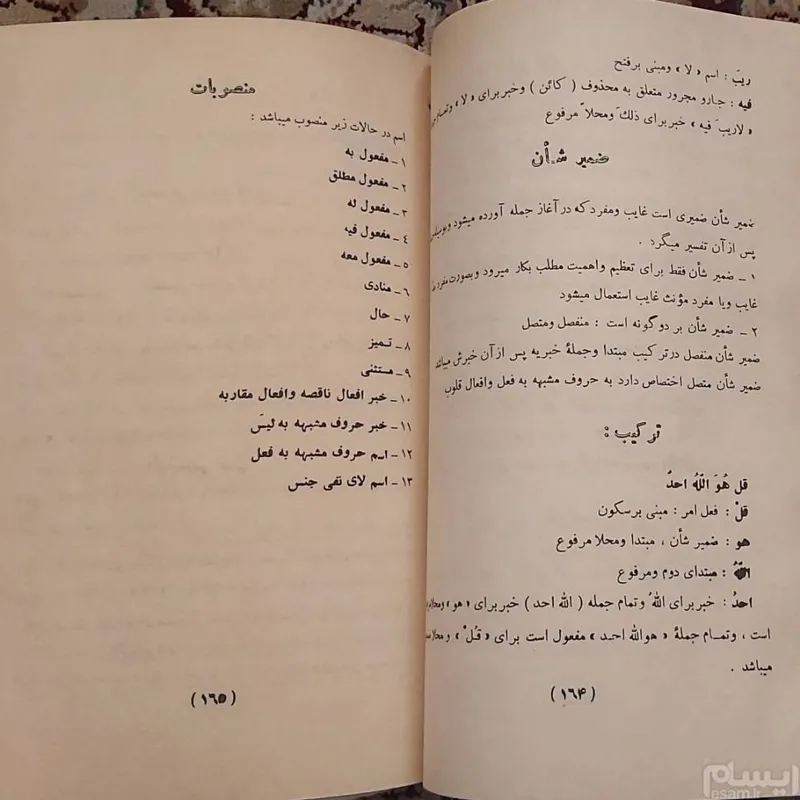 ریبَ : اسم « لا » ومبنی برفتح
فیه : جارو مجرور متعلق به محذوف ( کائن ) وخبر برای « لا » وتمام
« لاریبَ فیه » خبر برای ذلكَ ومحلاً مرفوع
ضمیر شأن
ضمیر شأن ضمیری است غایب ومفرد که در آغاز جمله آورده میشود وبوسیله
پس از آن تفسیر میگرد .
۱ ـ ضمیر شأن فقط برای تعظیم واهمیت مطلب بکار میرود وبصورت مفرد
غایب ویا مفرد مؤنث غایب استعمال میشود
۲ ـ ضمیر شأن بر دو گونه است : منفصل ومتصل
ضمیر شأن منفصل در ترکیب مبتدا وجملهٔ خبریه پس از آن خبرش میباشد
ضمیر شأن متصل اختصاص دارد به حروف مشبهه به فعل وافعال قلوب
ترکیب :
قل هُوَ اللّٰهُ احدٌ
قلْ : فعل امر : مبنی برسکون
هو : ضمیر شأن ، مبتدا ومحلا مرفوع
اللّٰهُ : مبتدای دوم ومرفوع
احدٌ : خبر برای اللهُ وتمام جمله ( الله احد ) خبر برای « هو » ومحلا
است ، وتمام جملهٔ « هوالله احد » مفعول است برای « قُلْ » ومحلا
میباشد .
( ۱۶۴ )
منصوبات
اسم در حالات زیر منصوب میباشد :
۱ ـ مفعول به
۲ ـ مفعول مطلق
۳ ـ مفعول له
٤ ـ مفعول فیه
۵ ـ مفعول معه
۶ ـ منادی
۷ ـ حال
۸ ـ تمیز
۹ ـ مستثنی
۱۰ ـ خبر افعال ناقصه وافعال مقاربه
۱۱ ـ خبر حروف مشبهه به لیسَ
۱۲ ـ اسم حروف مشبهه به فعل
۱۳ ـ اسم لای نفی جنس
( ۱۶۵ )
ایسام
esam.ir